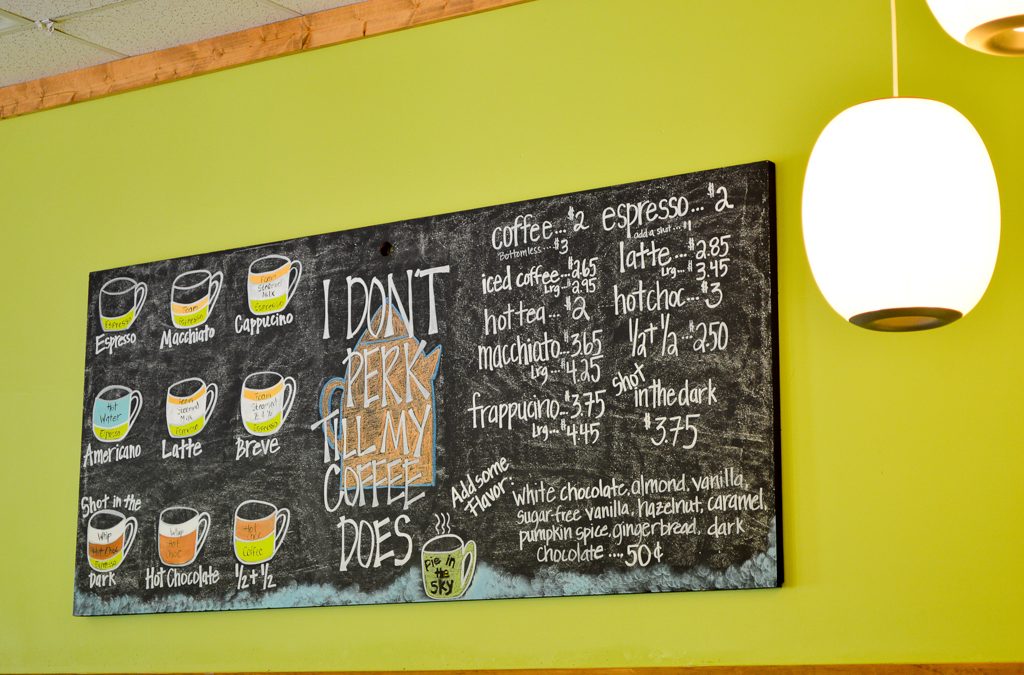 Espresso
Espresso
Foam
Espresso
Macchiato
Foam
Steamed
Milk
Espresso
Cappucino
Hot
Water
Espresso
Americano
Foam
Steamed
Milk
Espresso
Latte
Foam
Steamed
Espresso
Breve
Shot in the
Whip
Hot Choc
Espresso
Dark
Whip
Hot
Choc
Hot Chocolate
Hot
Choc
Coffee
1/2 + 1/2
I DON'T
PERK
TILL MY
COFFEE
DOES
Pie in
the
SKY
coffee...$2
Bottomless....$3
iced coffee...$2.65
Lrg...$2.95
hot tea...$2
macchiato...3.65
Lrg...$4.25
frappucino...$3.75
Lrg...$4.45
espresso...$2
add a shot...$1
latte...$2.85
Lrg...$3.45
hot choc...$3
1/2 + 1/2 $2.50
shot
in the dark
$3.75
Add some
Flavor:
white chocolate, almond, vanilla,
sugar-free vanilla, hazelnut, caramel,
pumpkin spice, gingerbread, dark
chocolate....50¢